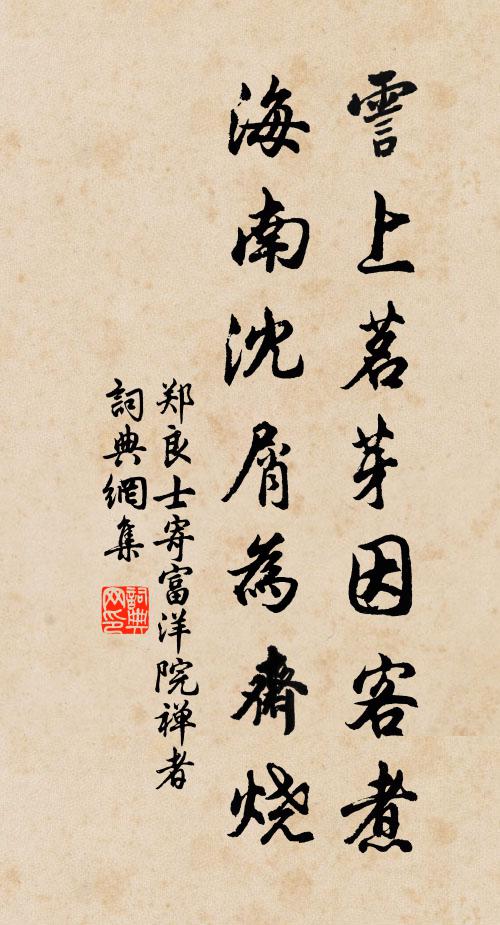 霅上茗芽因客煮
海南沈屑為齋烧
郑良士寄富洋院禅者
詞典網集
詞典
网印